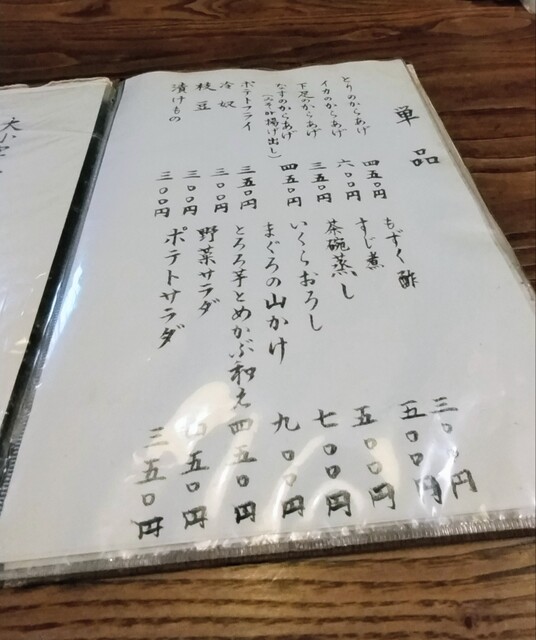 単品
とりのからあげ 四五〇円
イカのからあげ 六〇〇円
下足のからあげ 三五〇円
なすのからあげ 四五〇円
揚げ出し)
ポテトフライ 三五〇円
冷奴 三〇〇円
枝豆 三〇〇円
漬けもの 三〇〇円
もずく酢 三〇〇円
すじ煮 五〇〇円
茶碗蒸し 五〇〇円
いくらおろし 七〇〇円
まぐろの山かけ 九〇〇円
とろろ芋とめかぶ和え 四五〇円
野菜サラダ 四五〇円
ポテトサラダ 三五〇円